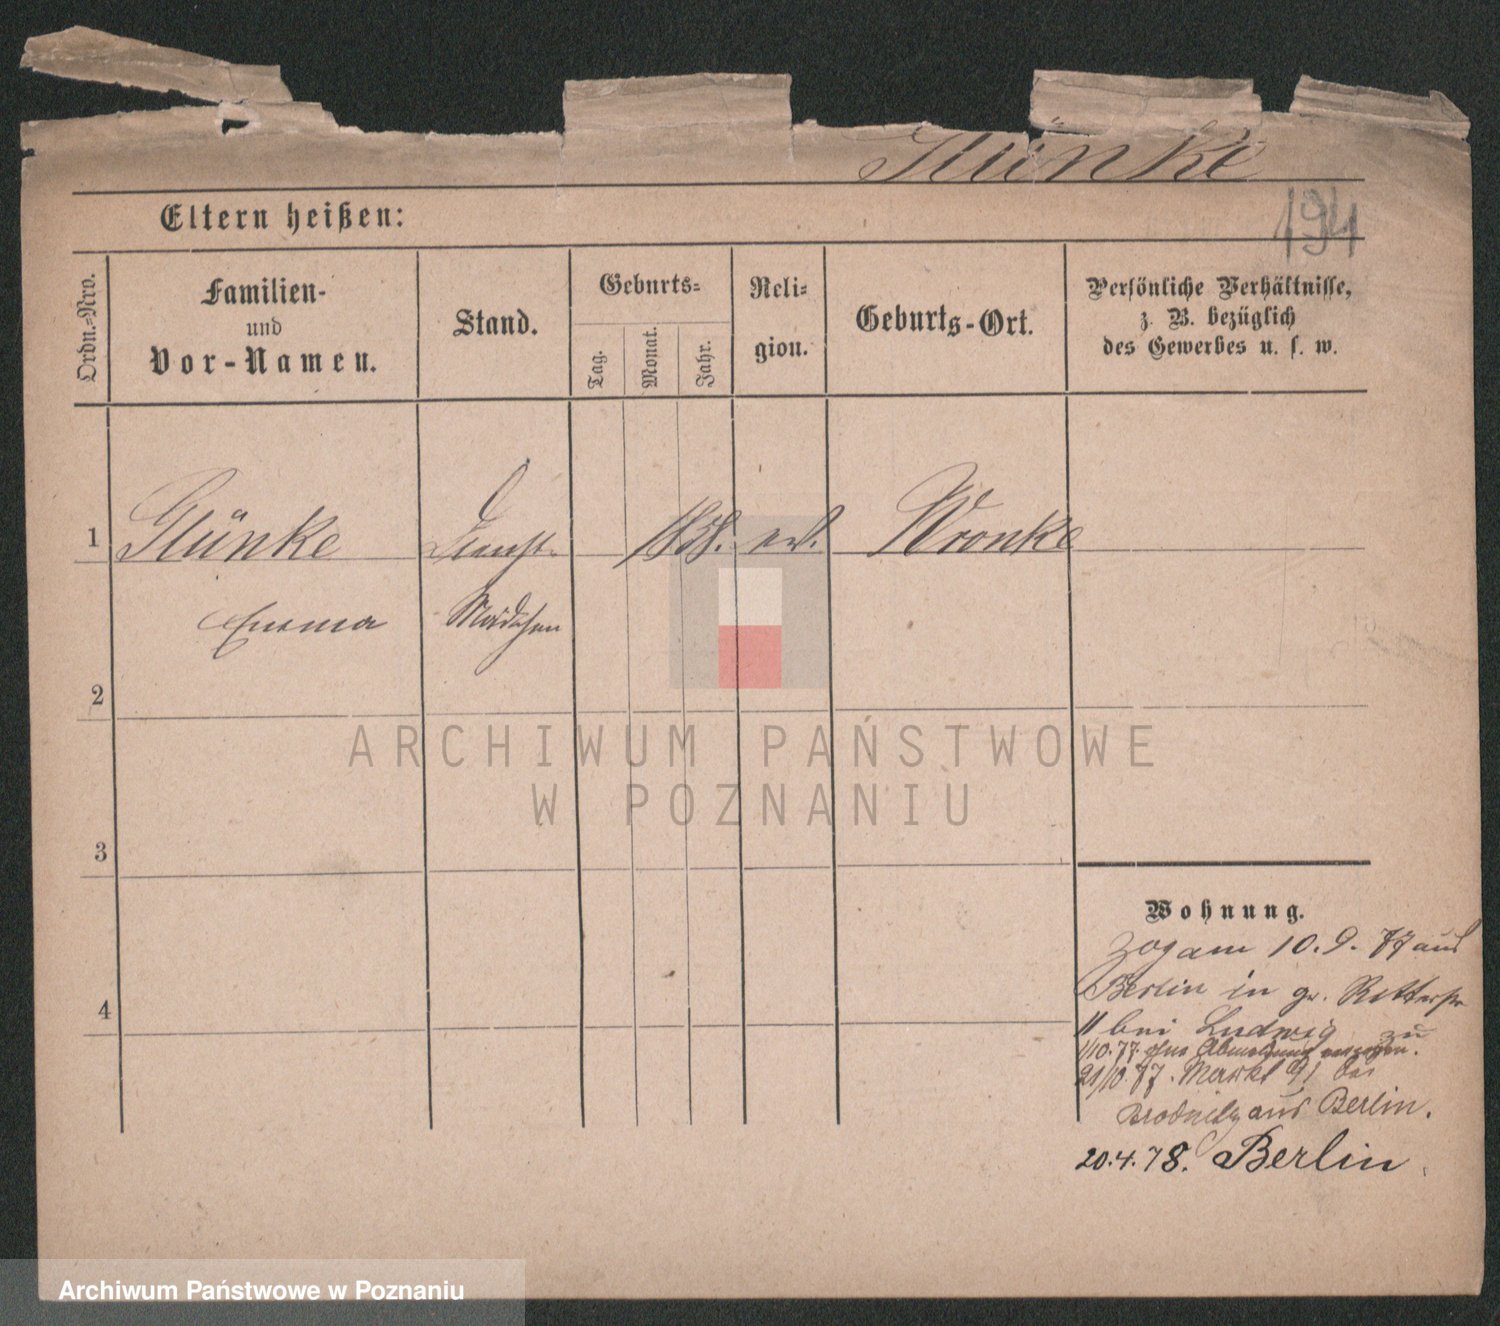 Glünke
194
Eltern heißen:
Ordn.=Nro.
Familien-
und
Vor-Namen.
Stand.
Geburts=
Tag.
Monat.
Jahr.
Reli=
gion.
Geburts-Ort.
Persönliche Verhältnisse,
z. B. bezüglich
des Gewerbes u. s. w.
1
Glünke
Dienst-
1858.
ev.
Wronke
Emma
Mädchen
2
ARCHIWUM PAŃSTWOWE
W POZNANIU
3
Wohnung.
zog am 10.9.77 aus
Berlin in gr. Ritterstr
4
11 bei Ludwig zu
1/10.77. ohne Abmeldung verzogen.
21/10.77. Markt 91 bei
aus Berlin.
20.4.78. Berlin
Archiwum Państwowe w Poznaniu